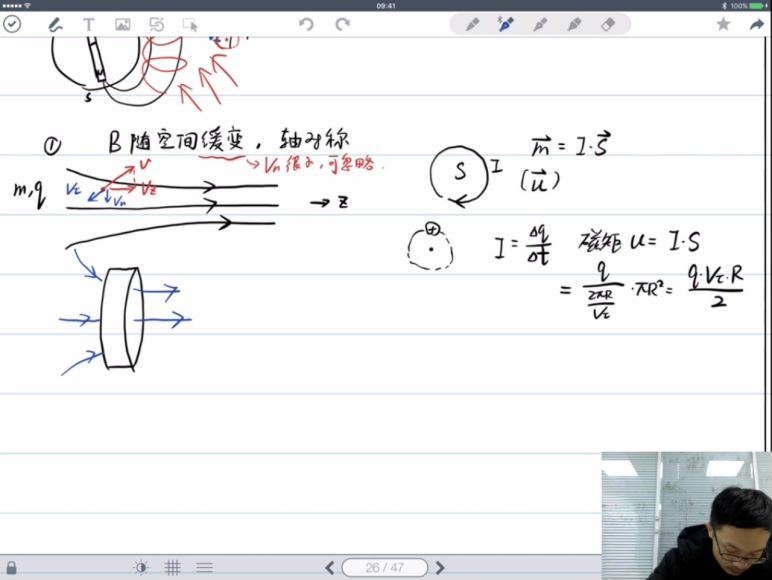 09:41
100%
T
S
① B随空间缓变，轴对称
→ Vn很小，可忽略.
m,q
V
Vτ
Vn
Vz
→ z
S I
m = I·S
(u)
I = Δq/Δt 磁矩 u = I·S
= q/(2πR/Vτ) · πR² = q·Vτ·R/2
26 / 47